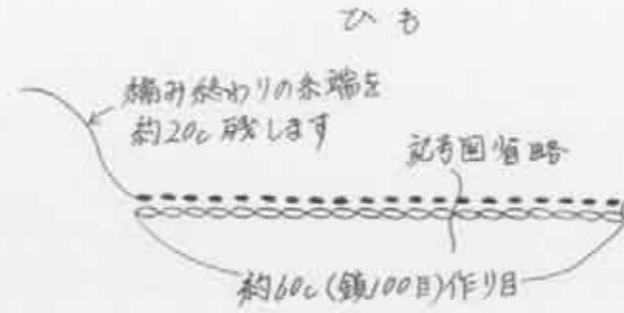 ひも
編み終わりの糸端を
約20c残します
記号図省略
約60c(鎖100目)作り目